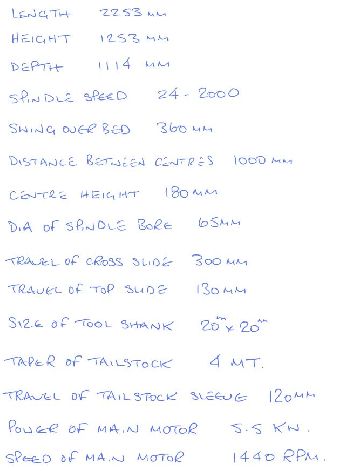 LENGTH 2253 MM
HEIGHT 1253 MM
DEPTH 1114 MM
SPINDLE SPEED 24 - 2000
SWING OVER BED 360 MM
DISTANCE BETWEEN CENTRES 1000 MM
CENTRE HEIGHT 180 MM
DIA OF SPINDLE BORE 65MM
TRAVEL OF CROSS SLIDE 300 MM
TRAVEL OF TOP SLIDE 130MM
SIZE OF TOOL SHANK 20MM X 20MM
TAPER OF TAILSTOCK 4 MT.
TRAVEL OF TAILSTOCK SLEEVE 120MM
POWER OF MAIN MOTOR 5.5 KW.
SPEED OF MAIN MOTOR 1440 RPM.